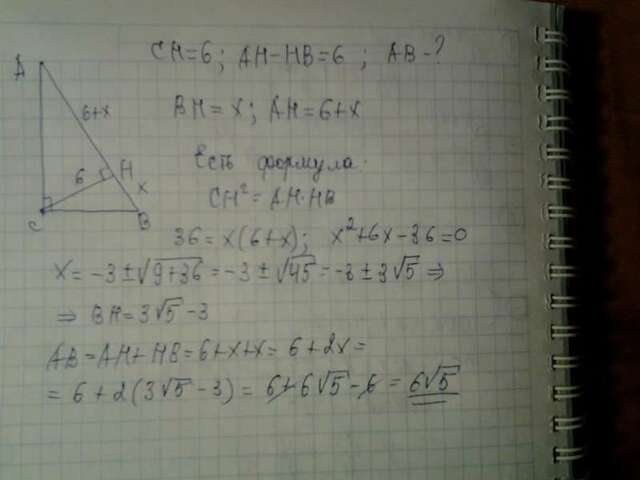 CH=6; AH-HB=6; AB-?
A
6+x
BH=x; AH=6+x
H
6
x
C
B
Есть формула:
CH²=AH·HB
36=x(6+x); x²+6x-36=0
x=-3±√9+36=-3±√45=-3±3√5⇒
⇒BH=3√5-3
AB=AH+HB=6+x+x=6+2x=
=6+2(3√5-3)=6+6√5-6=6√5